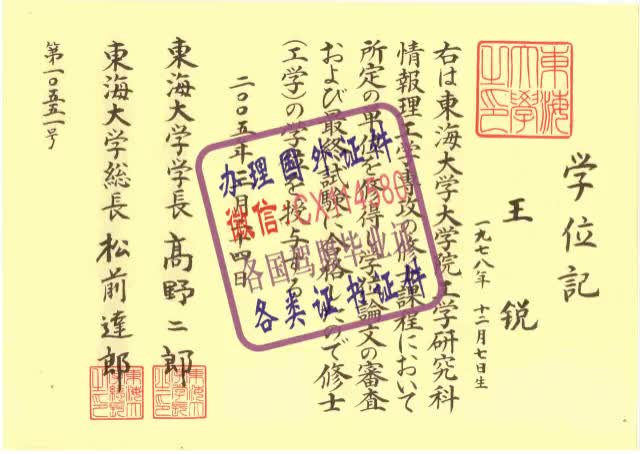 東海大学之印
学位記
王 锐
一九七八年 十二月七日生
右は東海大学大学院工学研究科
情報理工学専攻の修士課程において
所定の単位を修得し学位論文の審査
および最終試験に合格したので修士
(工学)の学位を授与する
二〇〇五年三月 四日
東海大学学長 髙野二郎
東海大学総長 松前達郎
第一〇五五一号
办理国外证件
微信:CXM4580
各国驾照毕业证
各类证书证件